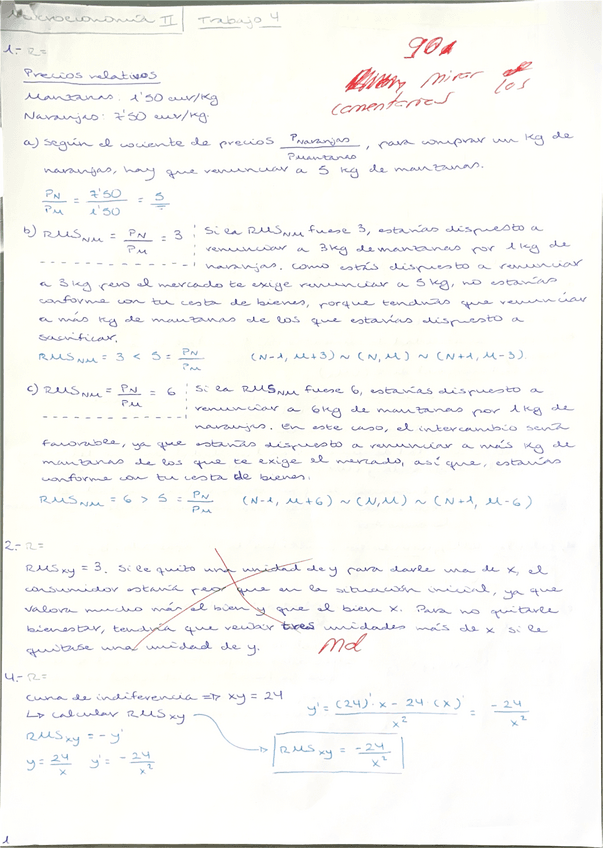 Microeconomía II | Trabajo 4
90
mirar los
comentarios
1.- R=
Precios relativos
Manzanas: 1'50 eur/kg
Naranjas: 7'50 eur/kg.
a) Según el cociente de precios PNaranjas/PManzanas, para comprar un kg de
naranjas, hay que renunciar a 5 kg de manzanas.
PN/PM = 7'50/1'50 = 5
b) RMSNM = PN/PM = 3 Si la RMSNM fuese 3, estarías dispuesto a
renunciar a 3kg de manzanas por 1kg de
naranjas. Como estás dispuesto a renunciar
a 3kg pero el mercado te exige renunciar a 5kg, no estarías
conforme con tu cesta de bienes, porque tendrías que renunciar
a más kg de manzanas de los que estarías dispuesto a
sacrificar.
RMSNM = 3 < 5 = PN/PM (N-1, M+3) ~ (N,M) ~ (N+1, M-3).
c) RMSNM = PN/PM = 6 Si la RMSNM fuese 6, estarías dispuesto a
renunciar a 6kg de manzanas por 1kg de
naranjas. En este caso, el intercambio sería
favorable, ya que estarías dispuesto a renunciar a más kg de
manzanas de los que te exige el mercado, así que, estarías
conforme con tu cesta de bienes.
RMSNM = 6 > 5 = PN/PM (N-1, M+6) ~ (N,M) ~ (N+1, M-6)
2.- R=
RMSxy = 3. Si le quito una unidad de y para darle una de x, el
consumidor estaría peor que en la situación inicial, ya que
valora mucho más el bien y que el bien x. Para no quitarle
bienestar, tendría que recibir tres unidades más de x si le
quitase una unidad de y.
Mal
4.- R=
Curva de indiferencia => xy = 24
↳ calcular RMSxy
y' = (24)'·x - 24 (x)'/x² = -24/x²
RMSxy = -y'
RMSxy = -24/x²
y = 24/x y' = -24/x²
1